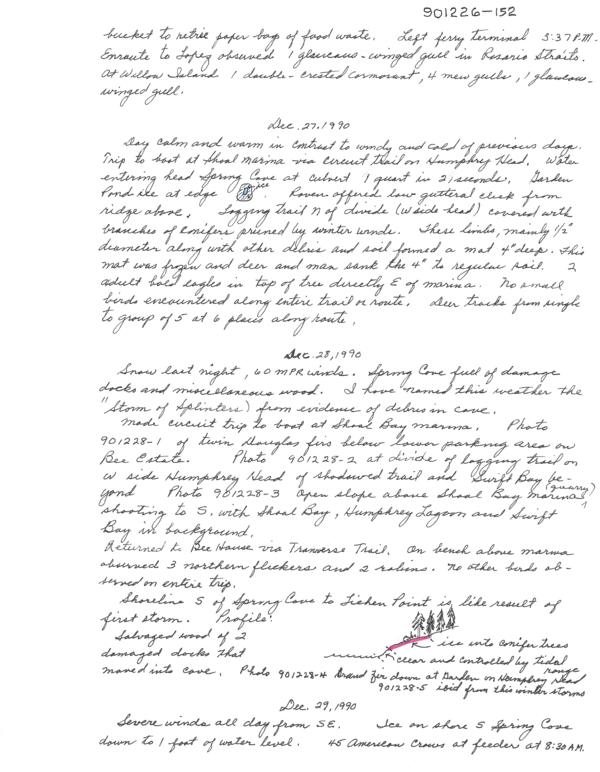 901226-152
bucket to retrie paper bags of food waste. Left ferry terminal 5:37 P.M.
Enroute to Lopez observed 1 glaucous-winged gull in Rosario Straits.
At Willow Island 1 double-crested cormorant, 4 mew gulls, 1 glaucous-
winged gull.
Dec. 27, 1990
Day calm and warm in contrast to windy and cold of previous days.
Trip to boat at Shoal marina via circuit trail on Humphrey Head. Water
entering head Spring Cove at culvert 1 quart in 21 seconds. Garden
Pond ice at edge ice. Raven offered low gutteral cluck from
ridge above. Logging trail N of divide (W side head) covered with
branches of conifers pruned by winter winds. These limbs, mainly 1/2"
diameter along with other debris and soil formed a mat 4" deep. This
mat was frozen and deer and man sank the 4" to regular soil. 2
adult bald eagles in top of tree directly E of marina. No small
birds encountered along entire trail or route. Deer tracks from single
to group of 5 at 6 places along route.
Dec. 28, 1990
Snow last night, 60 MPR winds. Spring Cove full of damage
docks and miscellaneous wood. I have named this weather the
"Storm of Splinters) from evidence of debris in cove.
Made circuit trip to boat at Shoal Bay marina. Photo
901228-1 of twin Douglas firs below lower parking area on
Bee Estate. Photo 901228-2 at divide of logging trail on
W side Humphrey Head of shadowed trail and Swift Bay be-
yond Photo 901228-3 open slope above Shoal Bay marina (quarry)
shooting to S. with Shoal Bay, Humphrey Lagoon and Swift
Bay in background.
Returned to Bee House via Tranverse Trail. On bench above marina
observed 3 northern flickers and 2 robins. No other birds ob-
served on entire trip.
Shoreline S of Spring Cove to Lichen Point is like result of
first storm. Profile:
Salvaged wood of 2 ice into conifer trees
damaged docks that clear and controlled by tidal range
moved into cove. Photo 901228-4 Grand fir down at Garden on Humphrey Head
901228-5 ibid from this winter storms
Dec. 29, 1990
Severe winds all day from SE. Ice on shore S Spring Cove
down to 1 foot of water level. 45 American Crows at feeder at 8:30 AM.